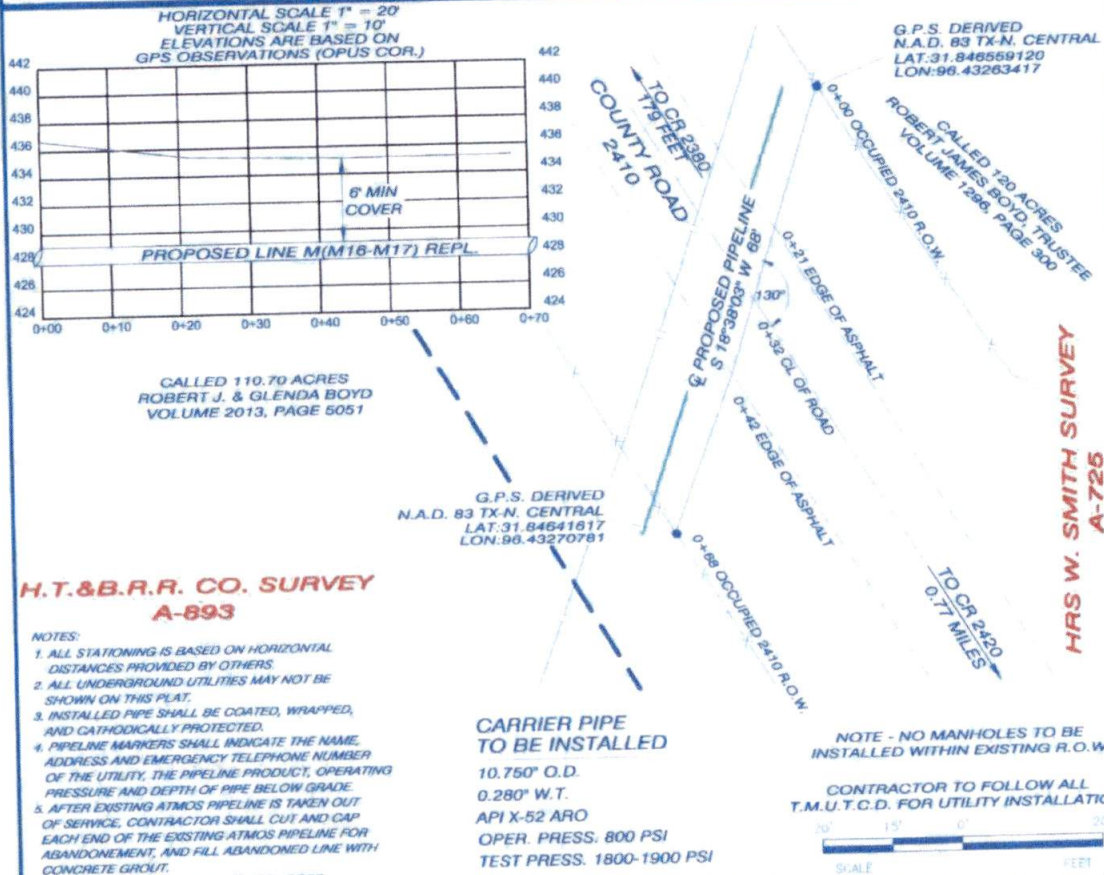 HORIZONTAL SCALE 1" = 20'
VERTICAL SCALE 1" = 10'
ELEVATIONS ARE BASED ON
GPS OBSERVATIONS (OPUS COR.)
442
440
438
436
434
432
430
428
426
424
442
440
438
436
434
432
430
428
426
424
6' MIN
COVER
PROPOSED LINE M(M16-M17) REPL.
0+00 0+10 0+20 0+30 0+40 0+50 0+60 0+70
CALLED 110.70 ACRES
ROBERT J. & GLENDA BOYD
VOLUME 2013, PAGE 5051
G.P.S. DERIVED
N.A.D. 83 TX-N. CENTRAL
LAT:31.846559120
LON:96.43263417
TO CR 2380
179 FEET
COUNTY ROAD
2410
0+00 OCCUPIED 2410 R.O.W.
CALLED 120 ACRES
ROBERT JAMES BOYD, TRUSTEE
VOLUME 1296, PAGE 300
℄ PROPOSED PIPELINE
S 18°38'03" W 68'
130°
0+21 EDGE OF ASPHALT
0+32 CL OF ROAD
0+42 EDGE OF ASPHALT
0+68 OCCUPIED 2410 R.O.W.
TO CR 2420
0.77 MILES
G.P.S. DERIVED
N.A.D. 83 TX-N. CENTRAL
LAT:31.84641617
LON:96.43270781
HRS W. SMITH SURVEY
A-725
H.T.&B.R.R. CO. SURVEY
A-893
NOTES:
1. ALL STATIONING IS BASED ON HORIZONTAL
DISTANCES PROVIDED BY OTHERS.
2. ALL UNDERGROUND UTILITIES MAY NOT BE
SHOWN ON THIS PLAT.
3. INSTALLED PIPE SHALL BE COATED, WRAPPED,
AND CATHODICALLY PROTECTED.
4. PIPELINE MARKERS SHALL INDICATE THE NAME,
ADDRESS AND EMERGENCY TELEPHONE NUMBER
OF THE UTILITY, THE PIPELINE PRODUCT, OPERATING
PRESSURE AND DEPTH OF PIPE BELOW GRADE.
5. AFTER EXISTING ATMOS PIPELINE IS TAKEN OUT
OF SERVICE, CONTRACTOR SHALL CUT AND CAP
EACH END OF THE EXISTING ATMOS PIPELINE FOR
ABANDONEMENT, AND FILL ABANDONED LINE WITH
CONCRETE GROUT.
CARRIER PIPE
TO BE INSTALLED
10.750" O.D.
0.280" W.T.
API X-52 ARO
OPER. PRESS. 800 PSI
TEST PRESS. 1800-1900 PSI
NOTE - NO MANHOLES TO BE
INSTALLED WITHIN EXISTING R.O.W
CONTRACTOR TO FOLLOW ALL
T.M.U.T.C.D. FOR UTILITY INSTALLATIO
15' 0'
SCALE FEET